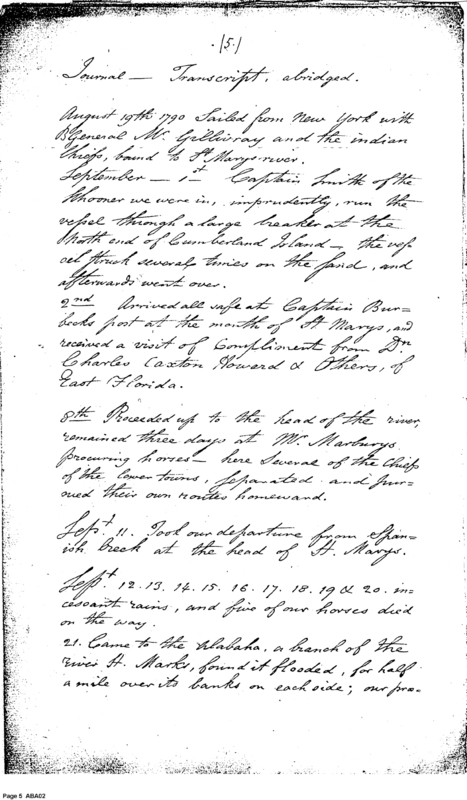 .15./
Journal — Transcript, abridged.
August 19th 1790 Sailed from New York with
BGeneral Mc. Gillivray and the indian
Chiefs, bound to St Marys river.
September — 1st Captain Smith of the
Schooner we were in, imprudently, run the
vessel through a large breaker at the
North end of Cumberland Island — the ves
sel struck several times on the sand, and
afterwards went over.
2nd Arrived all safe at Captain Bur-
becks post at the mouth of St Marys, and
received a visit of Compliment from Dn
Charles Caxton Howard & Others, of
East Florida.
8th Proceeded up to the head of the river,
remained three days at Mr. Marburys
procuring horses — here Several of the Chiefs
of the lower towns, separated and pur-
sued their own routes homeward.
Sept 11. Took our departure from Span-
ish Creek at the head of St. Marys.
Sept 12. 13. 14. 15. 16. 17. 18. 19 & 20. in-
cessant rains, and five of our horses died
on the way.
21. Came to the Alabaha, a branch of the
river St. Marks, found it flooded, for half
a mile over its banks on each side; our pro-
Page 5 ABA02